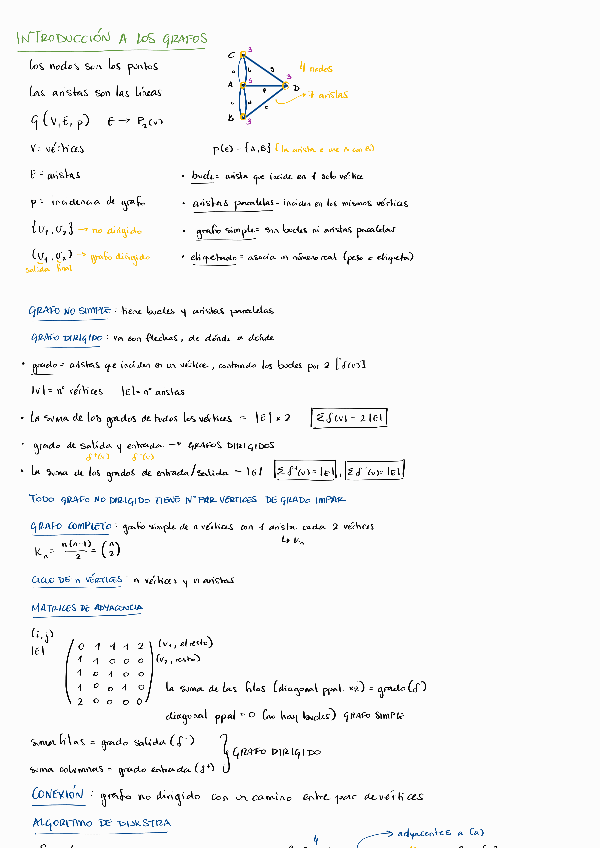 INTRODUCCIÓN A LOS GRAFOS
Los nodos son los puntos
Las aristas son las líneas
G(V,E,p) E → P₂(V)
V: vértices
E = aristas
p = incidencia de grafo
{V₁,V₂} → no dirigido
(V₁,V₂) → grafo dirigido
salida final
C 3
A 5
B 3
D 3
4 nodos
7 aristas
p(E) = {A,B} (la arista e une A con B)
• bucle = arista que incide en 1 solo vértice
• aristas paralelas = inciden en los mismos vértices
• grafo simple = sin bucles ni aristas paralelas
• etiquetado = asocia un número real (peso o etiqueta)
GRAFO NO SIMPLE: tiene bucles y aristas paralelas
GRAFO DIRIGIDO: va con flechas, de dónde a dónde
• grado = aristas que inciden en un vértice, contando los bucles por 2 [δ(v)]
|V| = nº vértices |E| = nº aristas
• La suma de los grados de todos los vértices = |E| × 2 Σδ(v) = 2|E|
• grado de salida y entrada → GRAFOS DIRIGIDOS
δ⁺(v) δ⁻(v)
• La suma de los grados de entrada/salida = |E| Σδ⁺(v) = |E|, Σδ⁻(v) = |E|
TODO GRAFO NO DIRIGIDO TIENE Nº PAR VÉRTICES DE GRADO IMPAR
GRAFO COMPLETO: grafo simple de n vértices con 1 arista cada 2 vértices
↳ Kn
Kn = n(n-1)/2 = (n 2)
CICLO DE n VÉRTICES: n vértices y n aristas
MATRICES DE ADYACENCIA
(i,j)
|E|
0 1 1 1 2 (V₁, el resto)
1 1 0 0 0 (V₂, resto)
1 0 1 0 0
1 0 0 1 0
2 0 0 0 0
la suma de las filas (diagonal ppal. x2) = grado (δ)
diagonal ppal = 0 (no hay bucles) GRAFO SIMPLE
suma filas = grado salida (δ⁻)
suma columnas = grado entrada (δ⁺)
GRAFO DIRIGIDO
CONEXIÓN: grafo no dirigido con un camino entre par de vértices
ALGORITMO DE DIJKSTRA
4
→ adyacentes a (a)